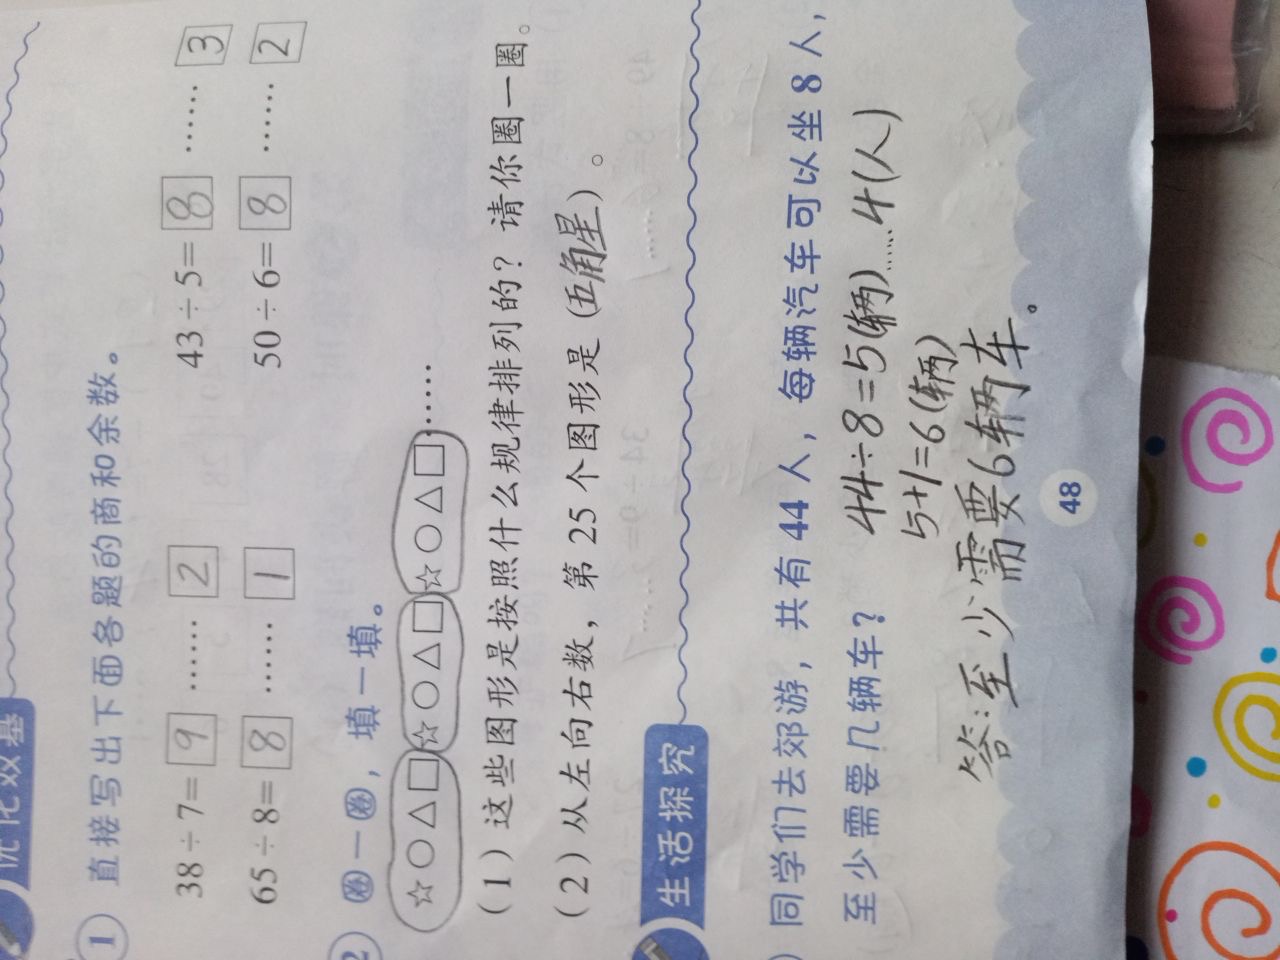 优化效基
1 直接写出下面各题的商和余数。
38÷7=9……2 43÷5=8……3
65÷8=8……1 50÷6=8……2
2 圈一圈，填一填。
☆○△□☆○△□☆○△□……
（1）这些图形是按照什么规律排列的？请你圈一圈。
（2）从左向右数，第25个图形是（五角星）。
生活探究
同学们去郊游，共有44人，每辆汽车可以坐8人，
至少需要几辆车？
44÷8=5(辆)……4(人)
5+1=6(辆)
答:至少需要6辆车。
48